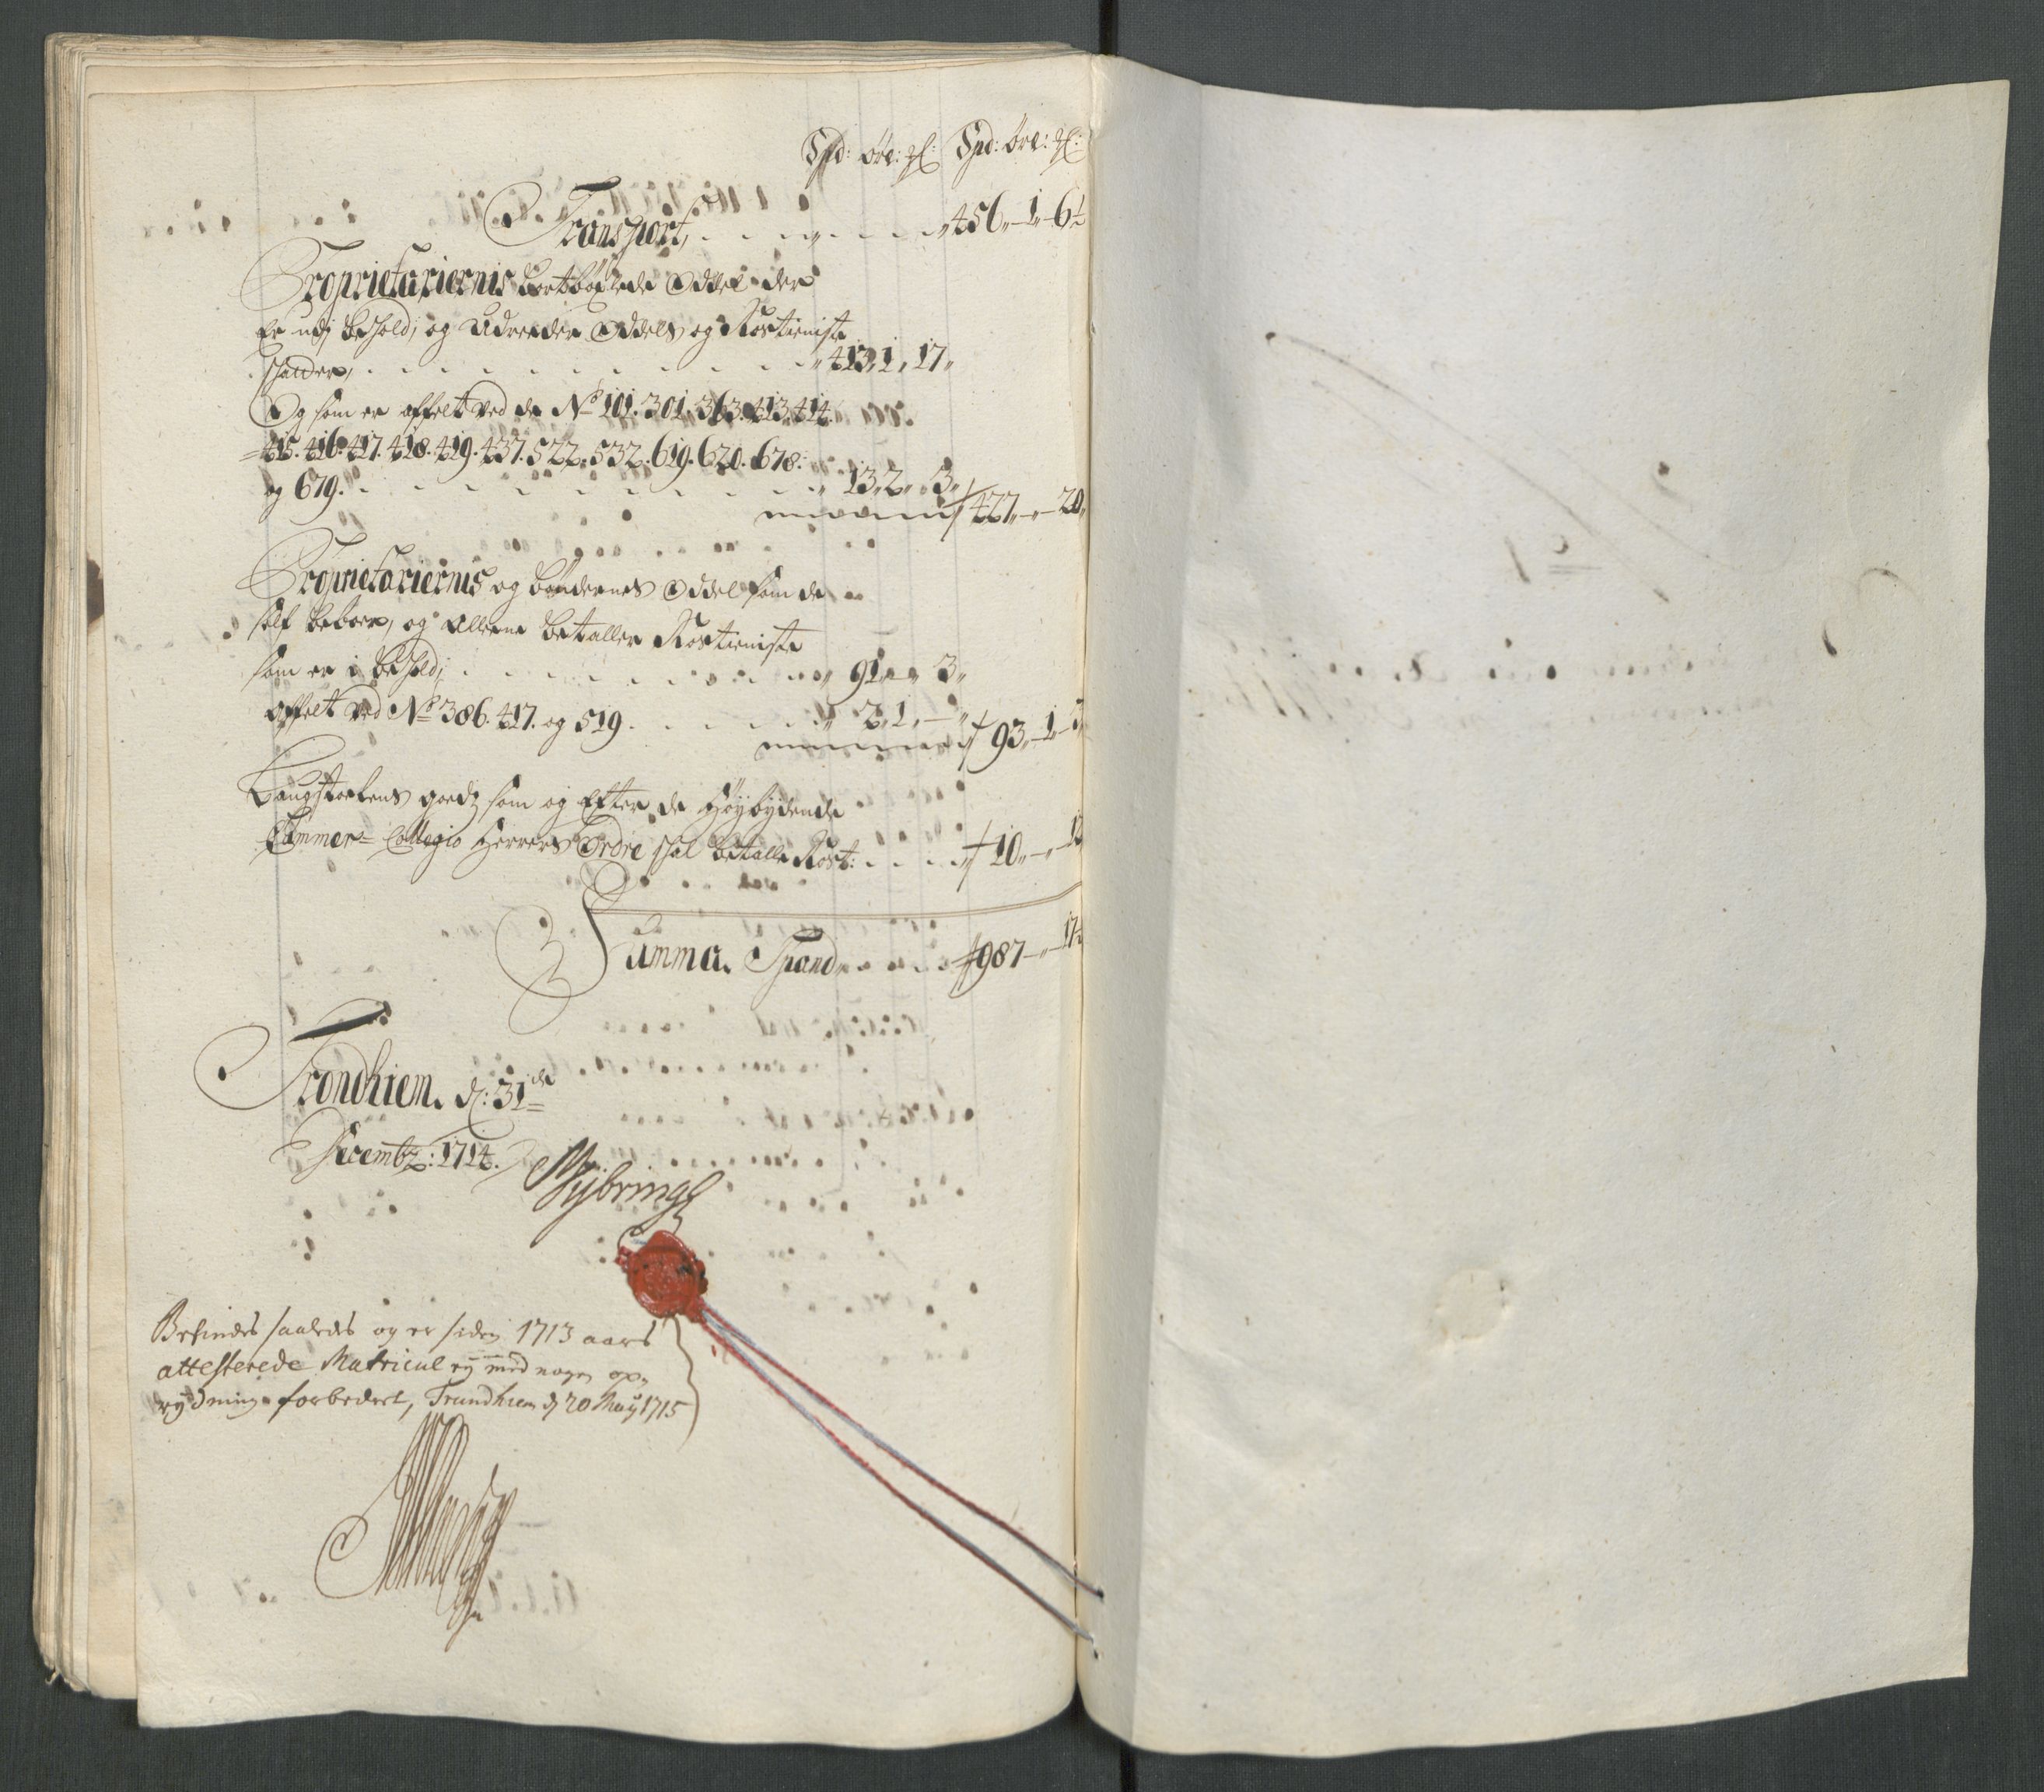 Spd: øre: ₰: Spd: øre: ₰:
Transport, . . . . . 456„ 1„ 6½
Proprietariernis bortbøxlede Oddel der
Er udj behold; og Udreeder Oddels og Rostieniste
schatder, . . . . . 413„ 1„ 17„
Og som er affelt ved de No 101. 301. 363. 413. 414.
415. 416. 417. 418. 419. 437. 522. 532. 619. 620. 678.
og 679. . . . . . 13„ 2„ 3„
427„ — „ 20„
Proprietariernis og bøndernes Oddel som de
self beboer, og alleene betaller Rostieniste
som er i behold; . . . . . 91„ „ 3„
affelt ved No 386. 417. og 519 . . . . . 2„ 1„ — „
93„ 1„ 3
Laugstoelens goedz som og Efter de Høybydende
Cammer= Collegio Herrers Ordre schal betalle Rost: . . . . 10„ — „ 12
Summa. Spand . . . . 987 — „ 17½
Trondhiem. d: 31de
Decembr: 1714.
Nybring
Befindes saaledes og er siden 1713 aars
attesterede Matricul ej med nogen op„
rydning forbedert, Trundhiem d 20 Maij 1715